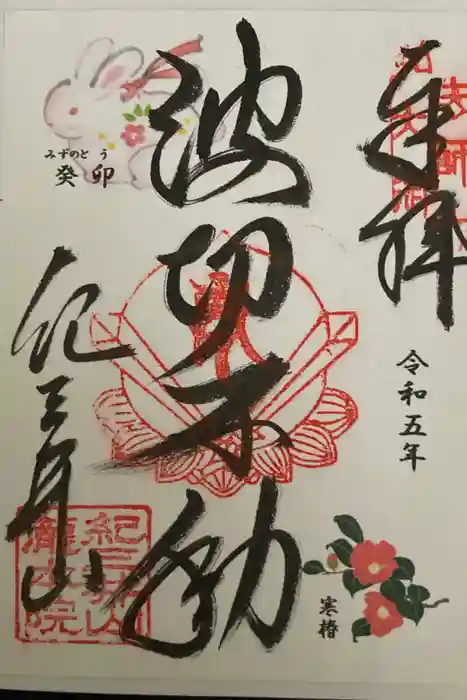 奉拝
令和五年
寒椿
波切不動
みずのとう
癸卯
紀三井山
紀三井山
龍宝院